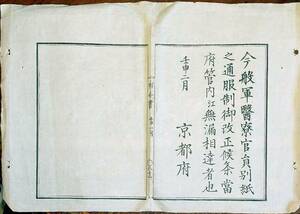 今般軍醫寮官員別紙
之通服制御改正候条當
府管内江無漏相達者也
壬申二月
京都府